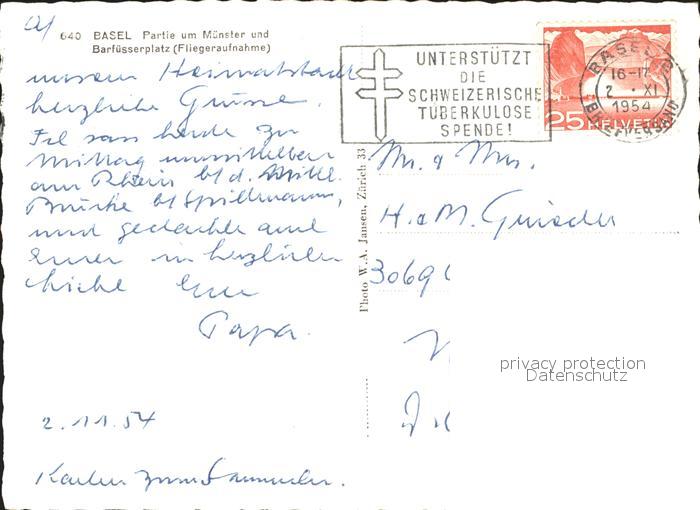 640 BASEL Partie um Münster und
Barfüsserplatz (Fliegeraufnahme)
unserer Heimatstadt
herzliche Grüsse.
sass heute zu
Mittag unmittelbar
am Rhein b/d. Mittl.
Brücke b/Spillmann,
und gedachte auch
Eurer in herzlicher
Liebe Euer
Papa.
2.11.54
Karten zum Sammeln.
Photo W. A. Jansen, Zürich 33
UNTERSTÜTZT
DIE
SCHWEIZERISCHE
TUBERKULOSE
SPENDE!
BASEL 2
16-17
2. XI
1954
BRIEFVERSAND
25 HELVETIA
Mr. & Mrs.
H. & M.
3069
privacy protection
Datenschutz